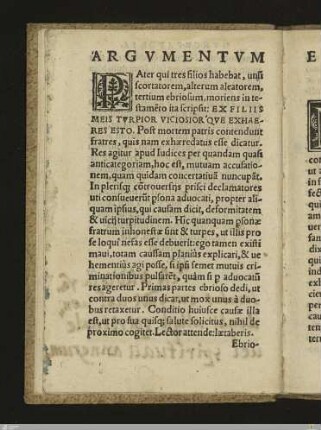 ARGVMENTVM
PAter qui tres filios habebat, unũ
scortatorem, alterum aleatorem,
tertium ebriosum. moriens in te
stamẽto ita scripsit: EX FILIIS
MEIS TVRPIOR VICIOSIOR'QVE EXHAE-
RES ESTO. Post mortem patris contendunt
fratres, quis nam exhæredatus esse dicatur.
Res agitur apud Iudices per quandam quasi
anticategoriam, hoc est, mutuam accusatio-
nem, quam quidam concertatiuã nuncupãt.
In plerisq; cõtrouersijs prisci declamatores
uti consueuerũt psona aduocati, propter ali-
quam ipsius, qui causam dicit, deformitatem
& uicij turpitudinem. Hic quanquam psonæ
fratrum inhonestæ sint & turpes, ut illis pro
se loqui nefas esse debuerit: ego tamen existi
maui, totam causam planius explicari, & ue
hementius agi posse, si ipsi semet mutuis cri-
minationibus pulsarẽt, quàm si p aduocatũ
res ageretur. Primas partes ebrioso dedi, ut
contra duos unus dicat, ut mox unus à duo-
bus retaxetur. Conditio huiusce causæ illa
est, ut pro sua quisq; salute solicitus, nihil de
proximo cogitet. Lector attende: lætaberis.
Ebrio-